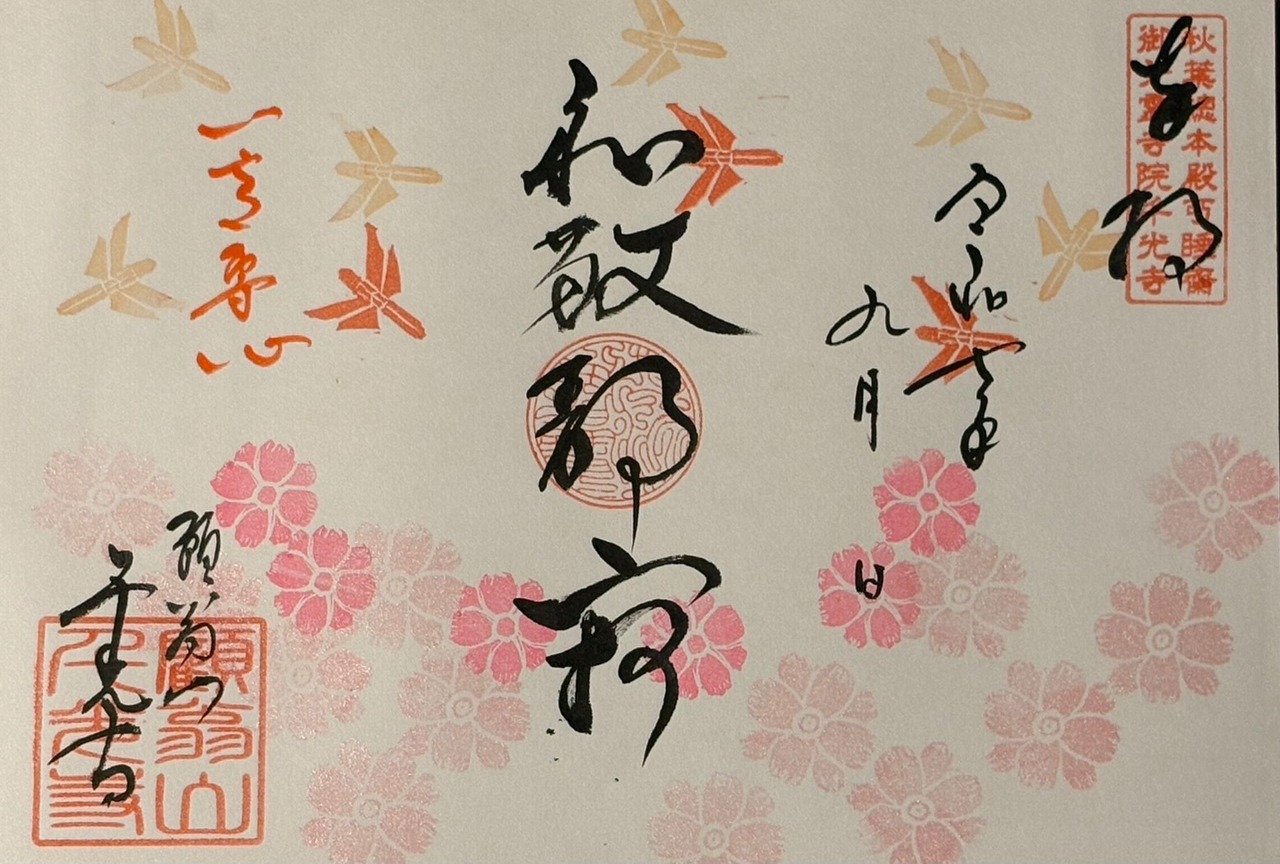 奉拝
秋葉總本殿可睡齋
御分霊寺院千光寺
令和七年
九月 日
和敬静寂
一意専心
顧翁山
千光寺
顧翁山
千光寺